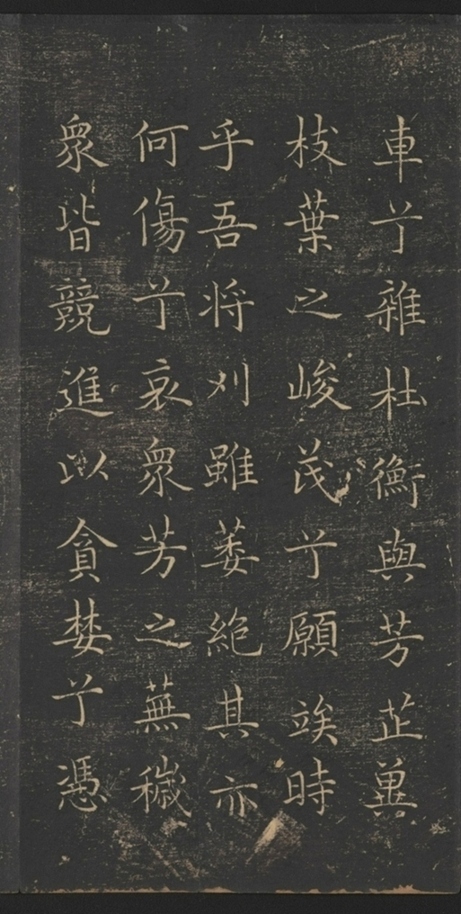 車兮雜杜衡與芳芷兾
枝葉之峻茂兮願竢時
乎吾将刈雖萎絶其亦
何傷兮哀衆芳之蕪穢
衆皆競進以貪婪兮憑